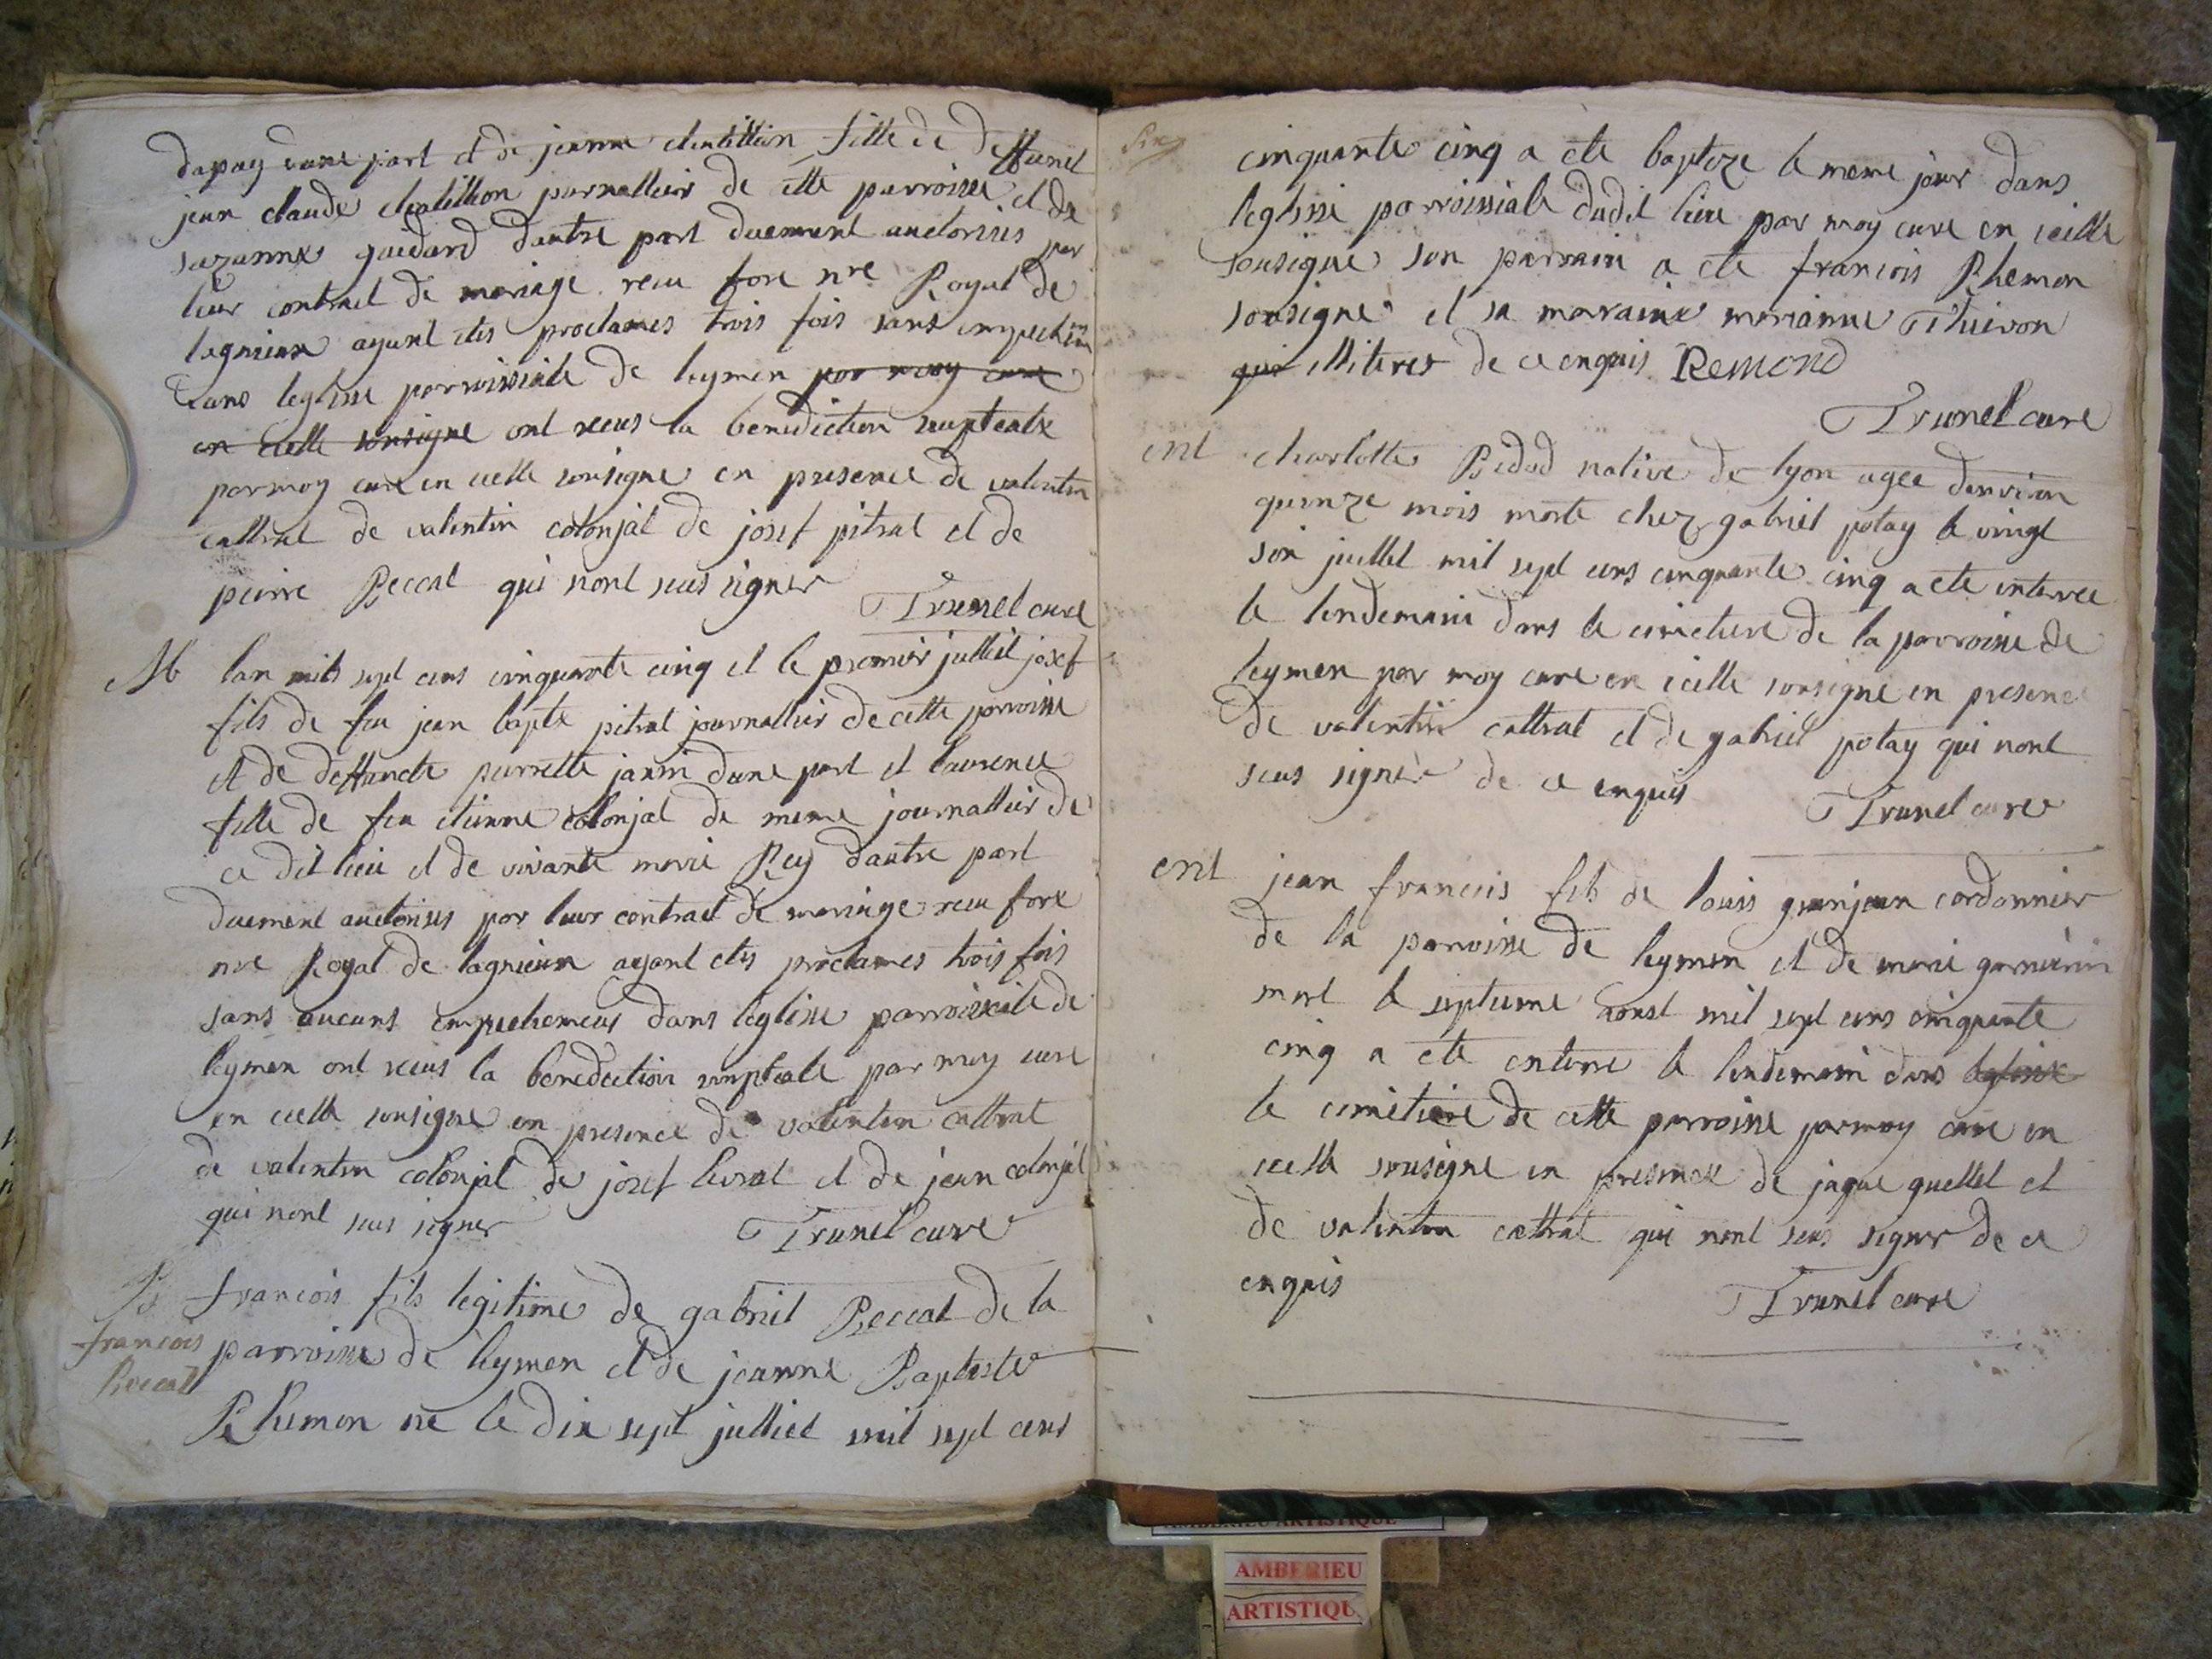 dapay dune part et de jeanne chatillion fille de deffunct
jean claude chatillion journallier de cette parroisse et de
suzanne guidard dautre part duement auctorisés par
leur contract de mariage recu fore nre Royal de
lagnieux ayant etes proclames trois fois sans empechem
dans leglisse parroissiale de leymen par moy cure
en icelle sousigne ont recus la benediction nuptcale
par moy cure en icelle sousigne en presence de valentin
cattrat de valentin colonjat de josef pitrat et de
pierre Beccat qui nont seus signer
Trunel cure
M lan mils sept cens cinquante cinq et le premier julliet josef
fils de feu jean bapte pitrat journallier de cette parroisse
et de deffuncte pierrette janin dune part et laurence
fille de feu etienne colonjat de meme journallier de
ce dit lieu et de vivante marie Rey dautre part
duement auctorises par leur contract de mariage recu fore
nre Royal de lagnieux ayant etes proclames trois fois
sans aucuns empechemens dans leglisse parroissiale de
leymen ont recus la benediction nuptcale par moy cure
en icelle sousigne en presence de valentin cattrat
de valentin colonjat de josef livrat et de jean colonjat
qui nont seus signer Trunel cure
B francois fils legitime de gabriel Beccat de la
francois parroisse de leymen et de jeanne Baptiste
Beccat
Rhemon né le dix sept julliet mil sept cens
cinquante cinq a ete baptize le meme jour dans
leglisse parroissiale dudit lieu par moy cure en icelle
sousigne son parrain a ete francois Rhemon
sousigne et sa maraine marianne Thievon
qui illiteres de ce enquis Remond
Trunel cure
ent charlotte Bedad native de lyon agee denviron
quinze mois morte chez gabriel potay le vingt
six juillet mil sept cens cinquante cinq a ete enterree
le lendemain dans le cimetiere de la parroisse de
leymen par moy cure en icelle sousigne en presence
de valentin cattrat et de gabriel potay qui nont
seus signer de ce enquis
Trunel cure
ent jean francois fils de louis granjean cordonnier
de la parroisse de leymen et de marie garnierin
mort le septieme aoust mil sept cens cinquante
cinq a ete enterre le lendemain dans leglisse
le cimetiere de cette parroisse par moy cure en
icelle sousigne en presence de jaque guellet et
de valentin cattrat qui nont seus signer de ce
enquis
Trunel cure
AMBERIEU ARTISTIQUE
AMBERIEU
ARTISTIQU